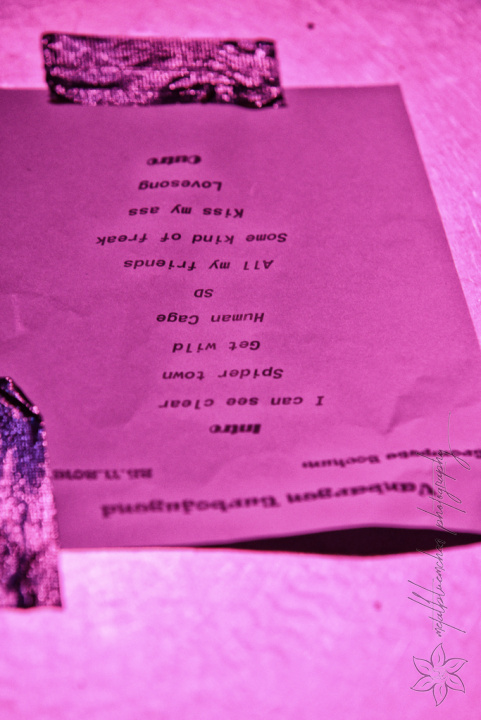 Vanbargen Turbojugend
Bochum
Intro
I can see clear
Spider town
Get wild
Human Cage
SD
All my friends
Some kind of freak
Kiss my ass
Lovesong
Outro
photography